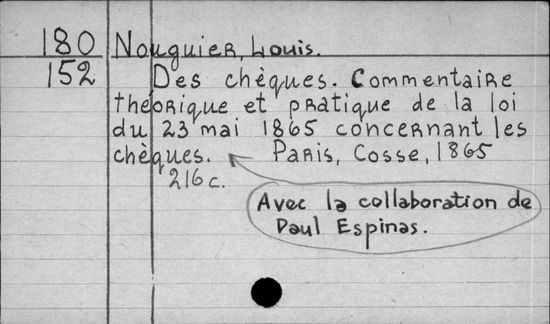 180 Nouguier, Louis.
152 Des chèques. Commentaire
théorique et pratique de la loi
du 23 mai 1865 concernant les
chèques. Paris, Cosse, 1865
216 c.
Avec la collaboration de
Paul Espinas.